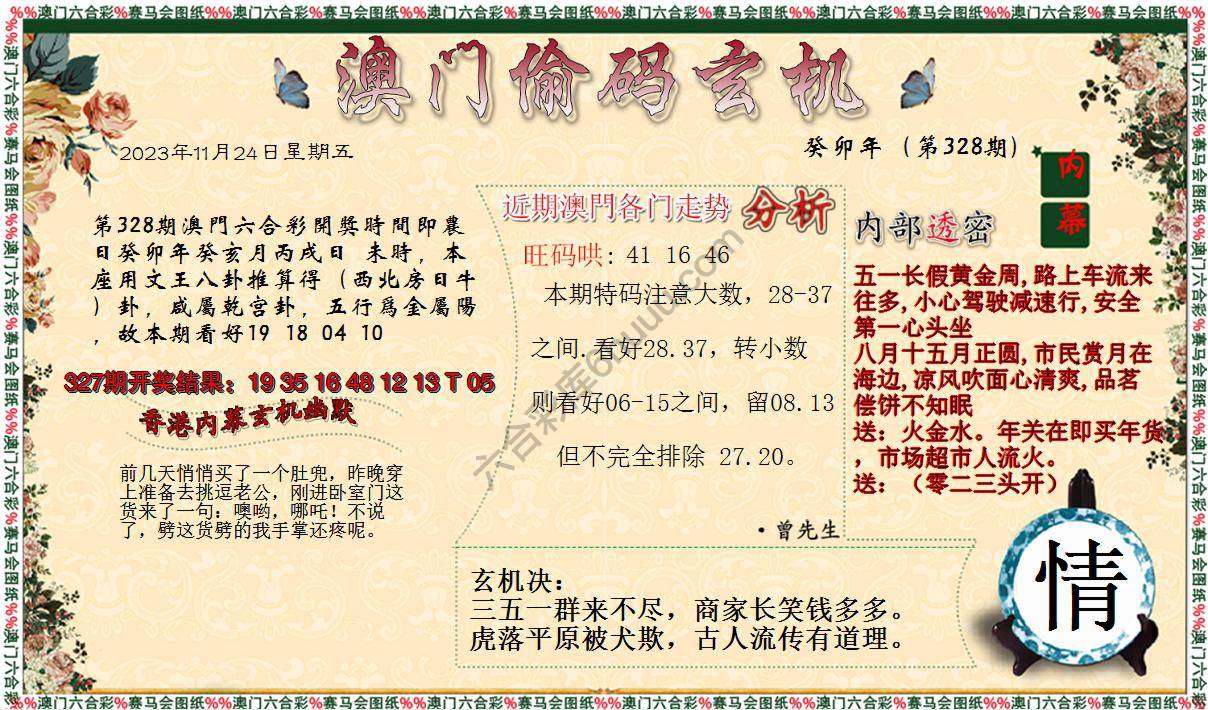 %%澳门六合彩%赛马会图纸%%澳门六合彩%赛马会图纸%%澳门六合彩%赛马会图纸%%澳门六合彩%赛马会图纸%%澳门六合彩%赛马会图纸%%澳门六合彩%赛马会图纸%%
澳门偷码玄机
2023年11月24日星期五
癸卯年（第328期）
内
幕
第328期澳門六合彩開獎時間即農
日癸卯年癸亥月丙戌日 未時，本
座用文王八卦推算得（西北房日牛
）卦，咸屬乾宫卦，五行爲金屬陽
，故本期看好19 18 04 10
327期开奖结果：19 35 16 48 12 13 T 05
香港内幕玄机幽默
前几天悄悄买了一个肚兜，昨晚穿
上准备去挑逗老公，刚进卧室门这
货来了一句：噢哟，哪吒！不说
了，劈这货劈的我手掌还疼呢。
近期澳門各门走势 分析
旺码哄: 41 16 46
本期特码注意大数，28-37
之间.看好28.37，转小数
则看好06-15之间，留08.13
但不完全排除 27.20。
·曾先生
内部透密
五一长假黄金周,路上车流来
往多,小心驾驶减速行,安全
第一心头坐
八月十五月正圆,市民赏月在
海边,凉风吹面心清爽,品茗
偿饼不知眠
送：火金水。年关在即买年货
，市场超市人流火。
送：（零二三头开）
玄机决：
三五一群来不尽，商家长笑钱多多。
虎落平原被犬欺，古人流传有道理。
情